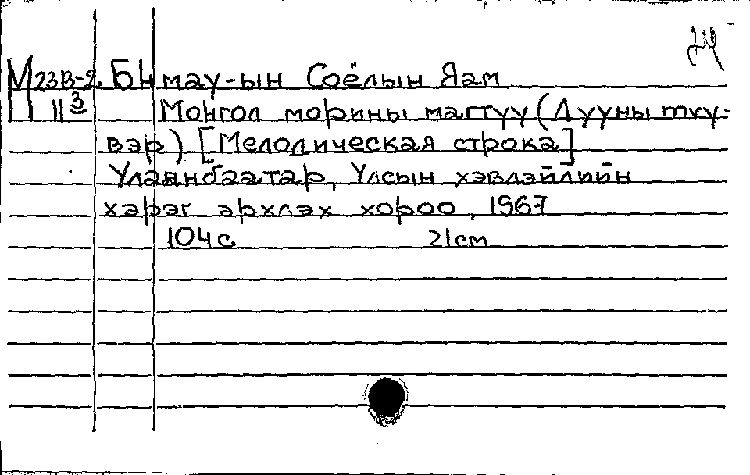 М 23В-2. БНмау-ын Соёлын Яам
II 3 Монгол морины магтуу (Дууны түү-
вэр) [Мелодическая строка]
Улаанбаатар, Улсын хэвлэйлийн
хэрэг эрхлэх хороо, 1967
104 с 21 см